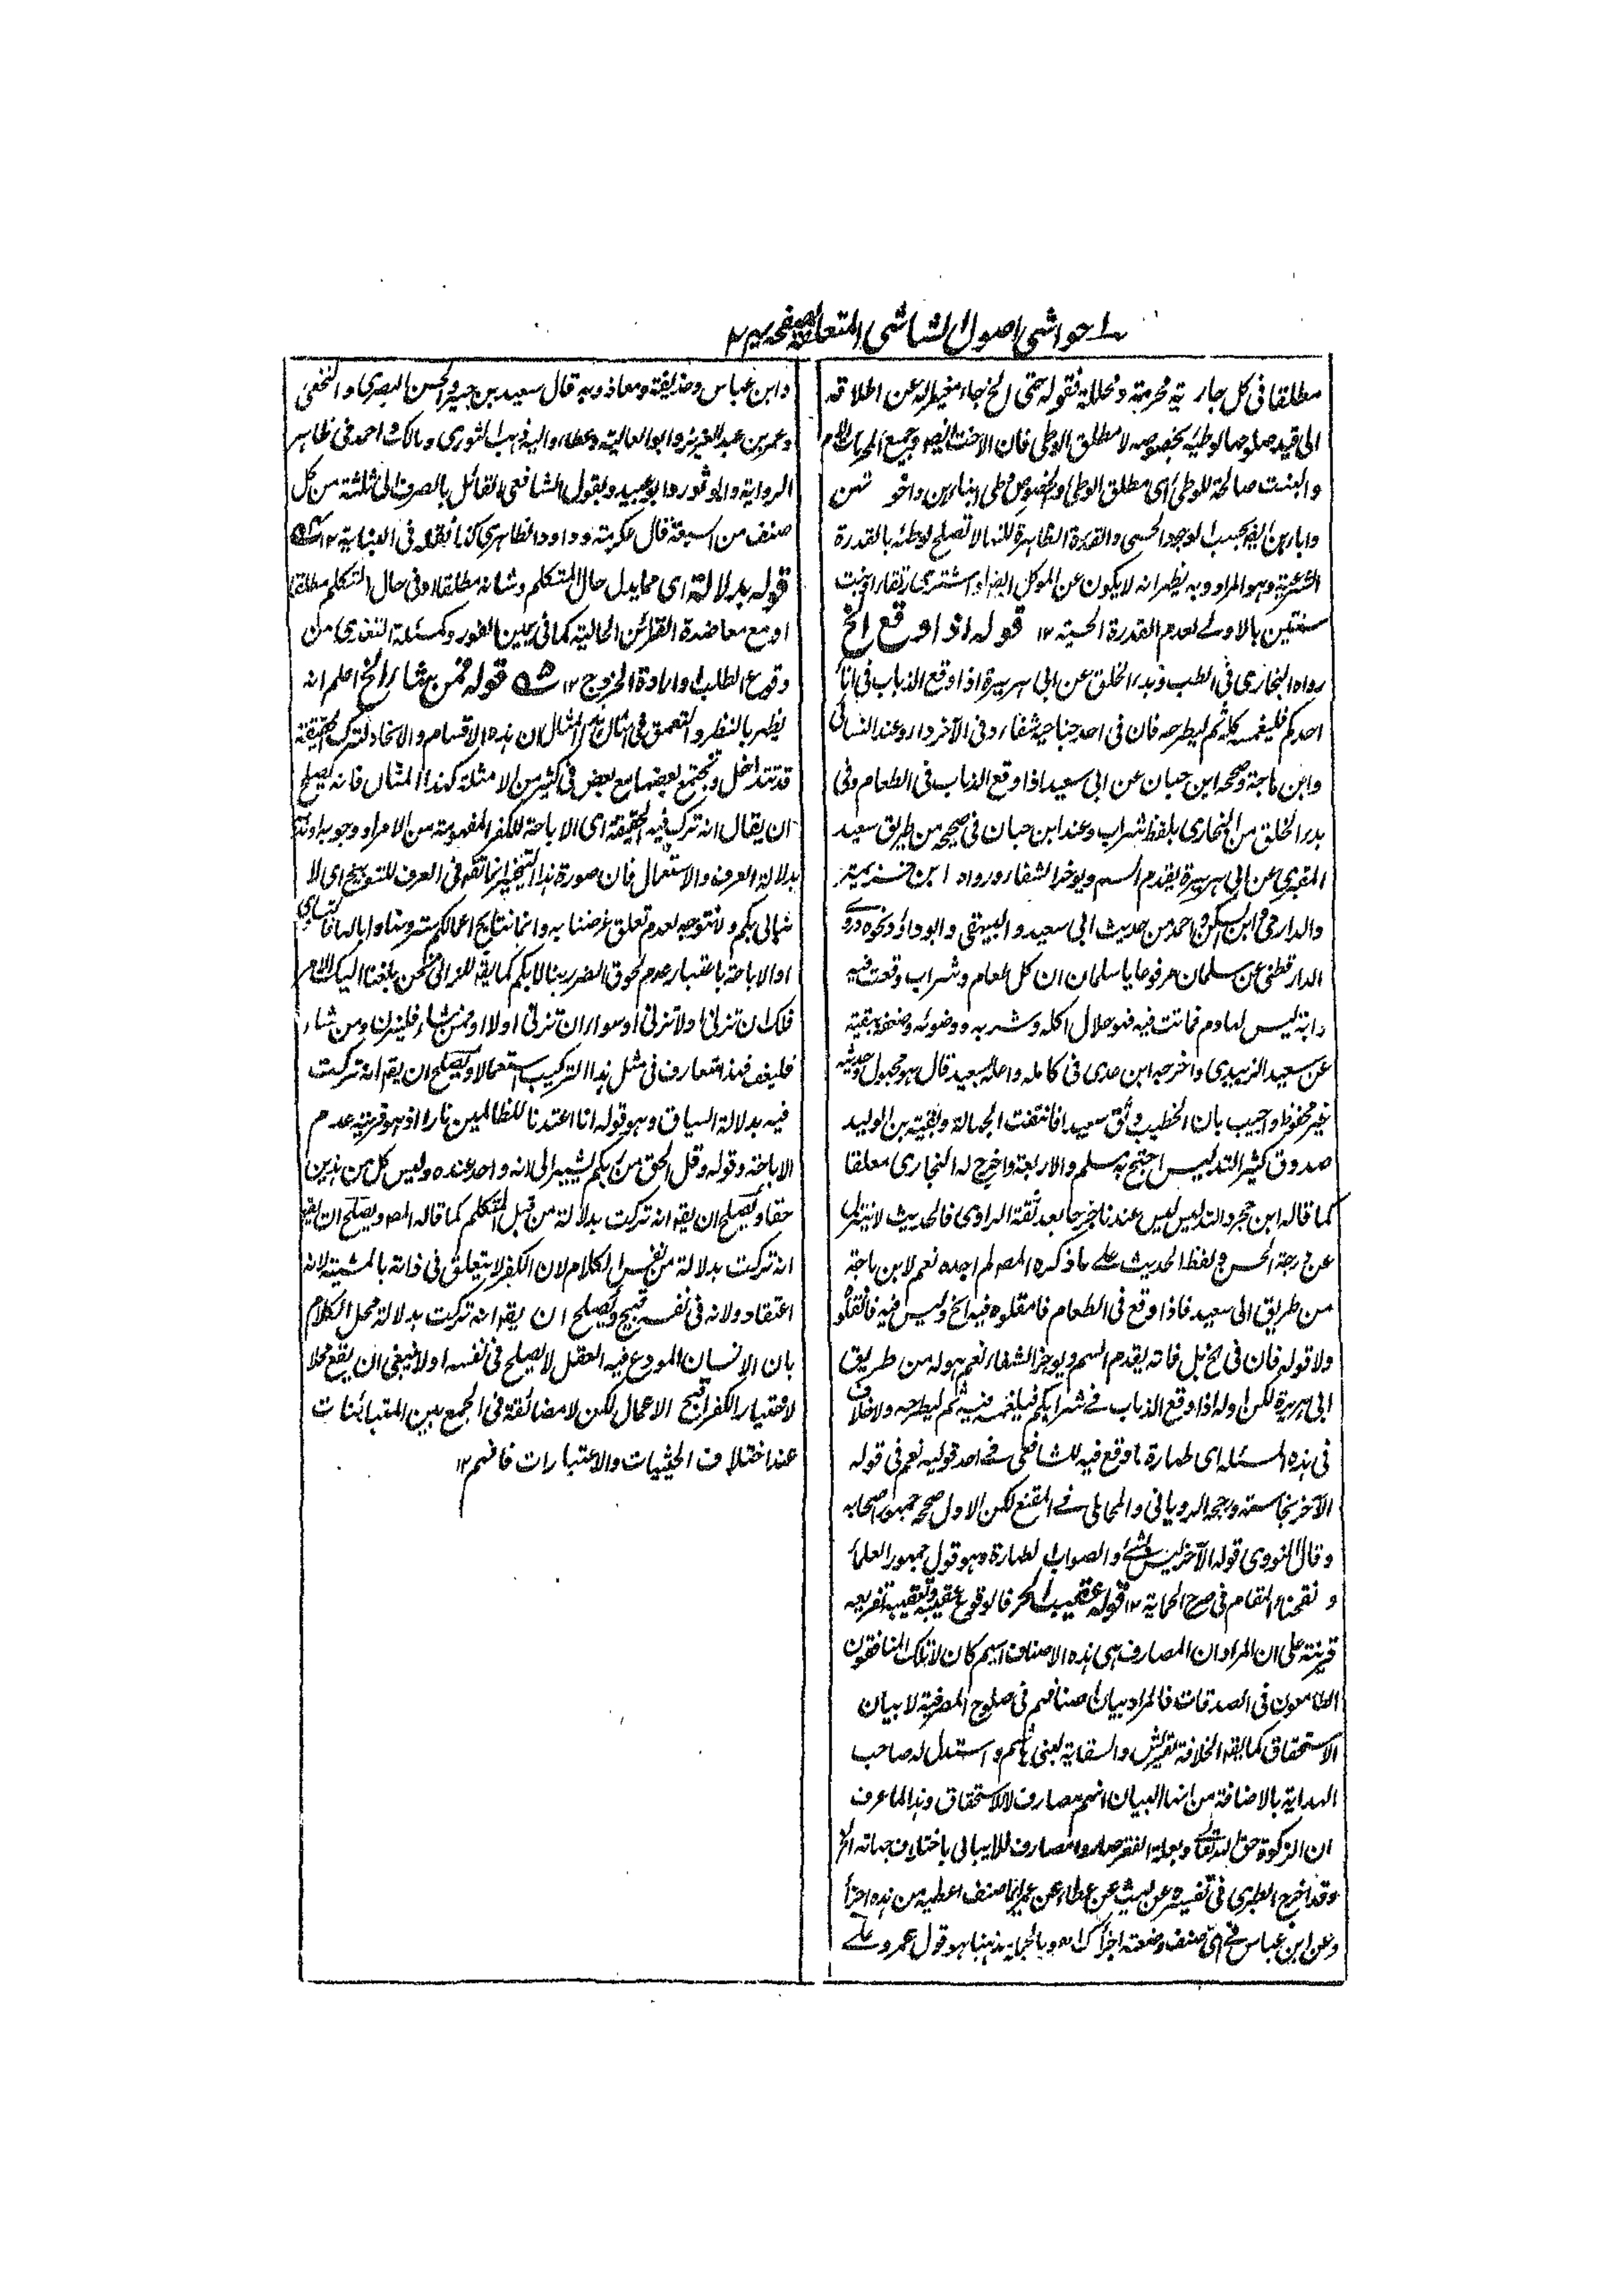 حواشی اصول الشاشی المتعلقة بصفحه
مطلقا فی کل جاریة محرمة ومحللة فقوله حتی الخ جاء مغیرا له عن اطلاقه
الی قید صلوحها لوطئه بخصوصه لا مطلق الوطی فان الاخت ایضا وجمیع المحرمات الام
والبنت صالحة للوطی ای مطلق الوطی
الشرعیة وهو المراد وبه یظهر انه لا یکون عن الموکل ایضا لو اشتری رتقاء او بنت
سنتین بالاولے لعدم القدرة الحسیة ١٢ قوله اذا وقع الخ
رواه البخاری فی الطب وبدء الخلق عن ابی هریرة اذا وقع الذباب فی اناء
احدکم فلیغمسه کله ثم لیطرحه فان فی احد جناحیه شفاء وفی الآخر داء وعند النسائی
وابن ماجة وصححه ابن حبان عن ابی سعید اذا وقع الذباب فی الطعام وفی
بدء الخلق من البخاری بلفظ شراب وعند ابن حبان فی صحیحه من طریق سعید
المقبری عن ابی هریرة یقدم السم ویوخر الشفاء ورواه ابن خزیمة
والدارمی وابن السکن واحمد من حدیث ابی سعید والبیهقی وابو داؤد ونحوه روے
الدارقطنی عن سلمان مرفوعا یا سلمان ان کل طعام وشراب وقعت فیه
دابة لیس لها دم فماتت فیه فهو حلال اکله وشربه ووضوئه وضعفه ببقیة
عن سعید الزبیدی واخرجه ابن عدی فی کامله واعله بسعید قال هو مجهول وحدیثه
غیر محفوظ واجیب بان الخطیب وثق سعیدا فانتفت الجهالة وبقیة بن الولید
صدوق کثیر التدلیس احتج به مسلم والاربعة واخرج له البخاری معلقا
کما قاله ابن حجر والتدلیس لیس عندنا جرحا بعد ثقة الراوی فالحدیث لا ینزل
عن درجة الحسن ولفظ الحدیث علے ما ذکره المص لم اجده نعم لابن ماجة
من طریق ابی سعید فاذا وقع فی الطعام فامقلوه فیه الخ ولیس فیه فانقلوه
ولا قوله فان فی الخ بل فانه یقدم السم ویوخر الشفاء نعم هو له من طریق
ابی هریرة لکن اوله اذا وقع الذباب فے شرابکم فلیغمسه فیه ثم لیطرحه ولا خلاف
فی هذه المسئلة ای طهارة ما وقع فیه للشافعی فے احد قولیه نعم فی قوله
الآخر نجاسته ورجحه الرویانی والمحاملی فے المقنع لکن الاول صححه جمهور اصحابه
وقال النووی قوله الآخر لیس بشئ والصواب الطهارة وهو قول جمهور العلماء
قرینة علی ان المراد ان المصارف هی هذه الاصناف ایهم کان لا تلک المنافقون
الطامعون فی الصدقات فالمراد بیان اصنافهم فی صلوح المصرفیة لا بیان
الاستحقاق کما یقه الخلافة لقریش والسقایة لبنی هاشم واستدل له صاحب
الهدایة بالاضافة من انها لبیان انهم مصارف لا للاستحقاق وهذا لما عرف
ان الزکوة حق لله تعالی وبعلة الفقر صاروا مصارف فلا یبالی باختلاف جهاته الخ
وقد اخرج الطبری فی تفسیره عن لیث عن عطاء عن عمر ایما صنف اعطیته من هذه اجزأ
وعن ابن عباس فے ای صنف وضعته اجزأک اه وبالجملة مذهبنا هو قول عمر وعلے
وابن عباس وحذیفة ومعاذ وبه قال سعید بن جبیر والحسن البصری والنخعی
وعمر بن عبد العزیز وابو العالیة وعطاء والیه ذهب الثوری ومالک واحمد فی ظاهر
الروایة وابو ثور وابو عبید وبقول الشافعی القائل بالصرف الی ثلثة من کل
صنف من السبعة قال عکرمة وداود الظاهری کذا نقله فی البنایة ١٢
قوله بدلالة ای مما یدل حال المتکلم وشانه مطلقا او فی حال التکلم مطلقا
او مع معاضدة القرائن الحالیة کما فی یمین الفور وکمسئلة التغدی من
وقوع الطلب وارادة الخروج ١٢ قوله فمن شاء الخ اعلم انه
یظهر بالنظر والتعمق فی امثال هذا المثال ان هذه الاقسام والانحاء لترک الحقیقة
قد تتداخل وتجتمع بعضها مع بعض فی کثیر من الامثلة کهذا المثال فانه یصلح
ان یقال انه ترک فیه الحقیقة ای الاباحة للکفر المفهومة من الامر او وجوبه او ندبه
بدلالة العرف والاستعمال فان صورة هذا التخییر انما تقع فی العرف للتوبیخ ای لا
نبالی بکم ولا نتوجه لعدم تعلق غرضنا به وانما نتایج اعمالکم
او الاباحة باعتبار عدم لحوق الضرر بنا لا بکم کما یقه للزانی نحن بلغنا الیک الامر
فلک ان تزنی او لا تزنی او سواء ان تزنی او لا او فمن شاء فلیزن ومن شاء
فلیعف فهذا متعارف فی مثل هذا الترکیب استعمالا ویصلح ان یقه انه ترکت
فیه بدلالة السیاق وهو قوله انا اعتدنا للظالمین نارا اذ هو قرینة عدم
الاباحة وقوله وقل الحق من ربکم یشیر الی انه واحد عنده ولیس کل من هذین
حقا ویصلح ان یقه انه ترکت بدلالة من قبل المتکلم کما قاله المص ویصلح ان یقه
انه ترکت بدلالة من نفس الکلام لان الکفر لا یتعلق فی ذاته بالمشیة لانه
اعتقاد ولانه فی نفسه قبیح ویصلح ان یقه انه ترکت بدلالة محل الکلام
بان الانسان المودع فیه العقل لا یصلح فی نفسه او لا ینبغی ان یقع محلا
لاختیار الکفر اقبح الاعمال لکن لا مضائقة فی الجمع بین المتبائنات
عند اختلاف الحیثیات والاعتبارات فافهم ١٢